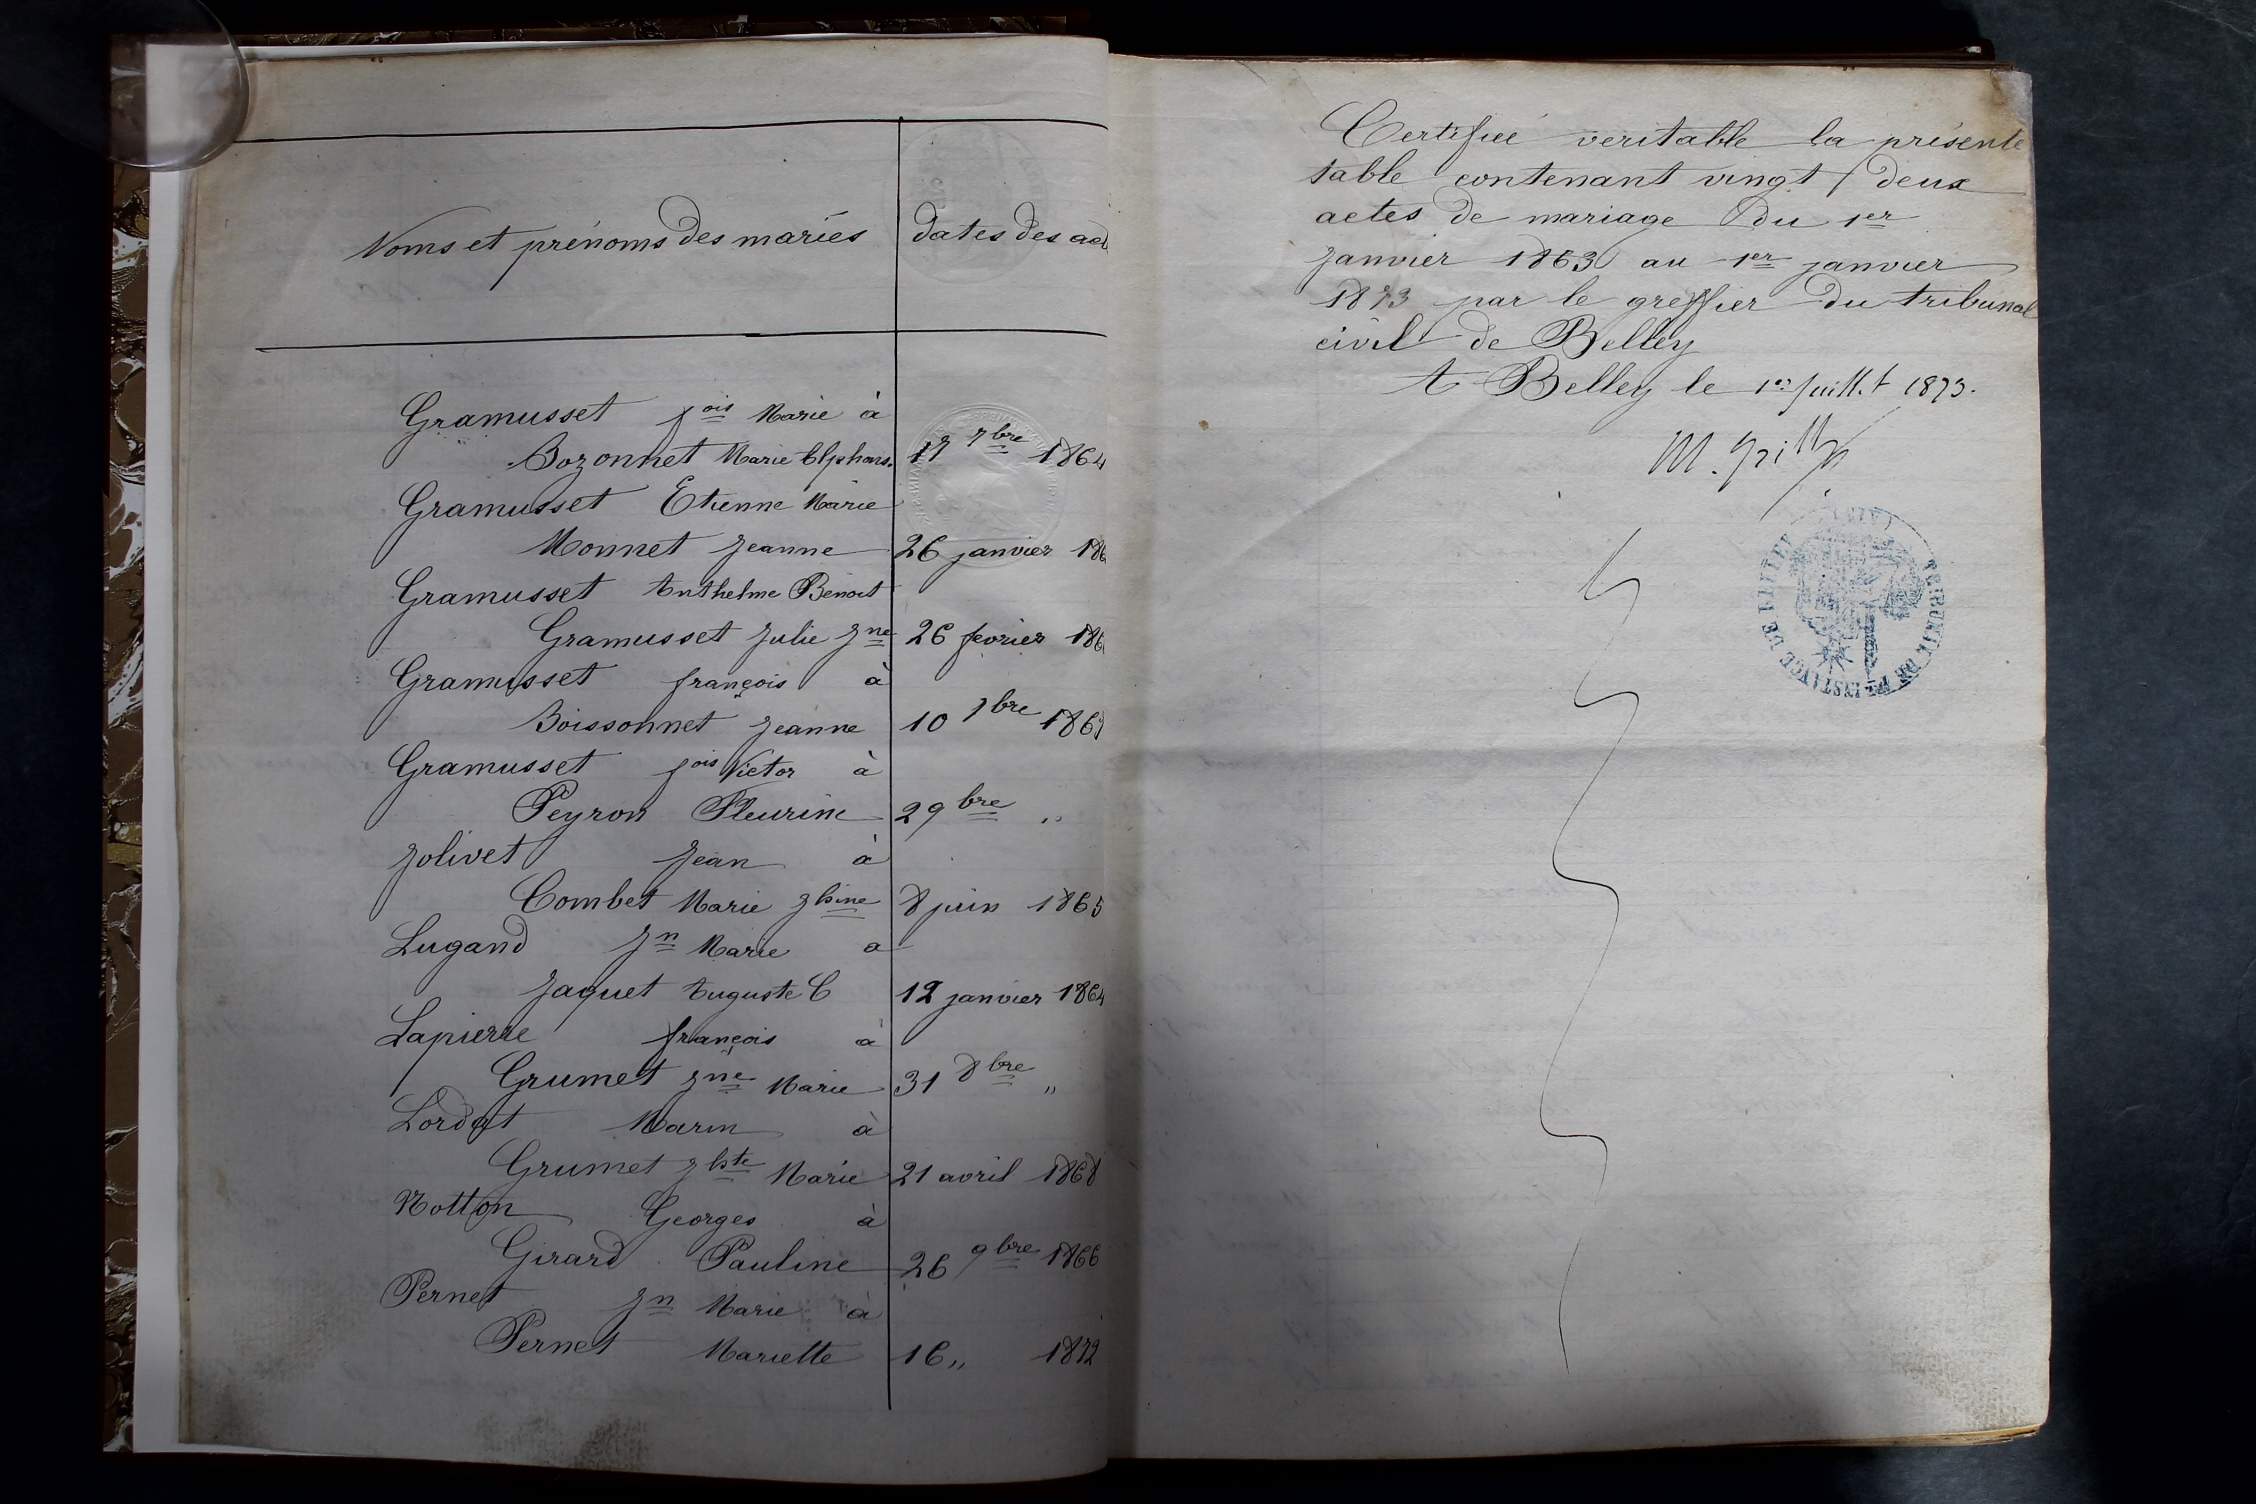 Noms et prénoms des mariés
dates des act
Gramusset fois Marie à
Bozonnet Marie Alphons. 17 7bre 1864
Gramusset Etienne Marie
Monnet Jeanne 26 janvier 186
Gramusset Anthelme Benoit
Gramusset Julie Jne 26 fevrier 186
Gramusset françois à
Boissonnet Jeanne 10 7bre
Gramusset fois Victor à
Peyron Fleurine 29 bre "
Jolivet Jean à
Combet Marie 8 juin 1865
Lugand Jn Marie a
Jaquet Auguste C 12 janvier 1864
Lapierre françois à
Grumet Jne Marie 31 8bre "
Lordat Marin à
Grumet Marie 21 avril 1868
Notton Georges à
Girard Pauline 26 9bre 1866
Pernet Jn Marie à
Pernet Mariette 16 " 1872
Certifiée veritable la présente
table contenant vingt deux
actes de mariage du 1er
Janvier 1863 au 1er janvier
1873 par le greffier du tribunal
civil de Belley
A Belley le 1er Juillet 1873.
TRIBUNAL DE 1ÈRE INSTANCE DE BELLEY (AIN)